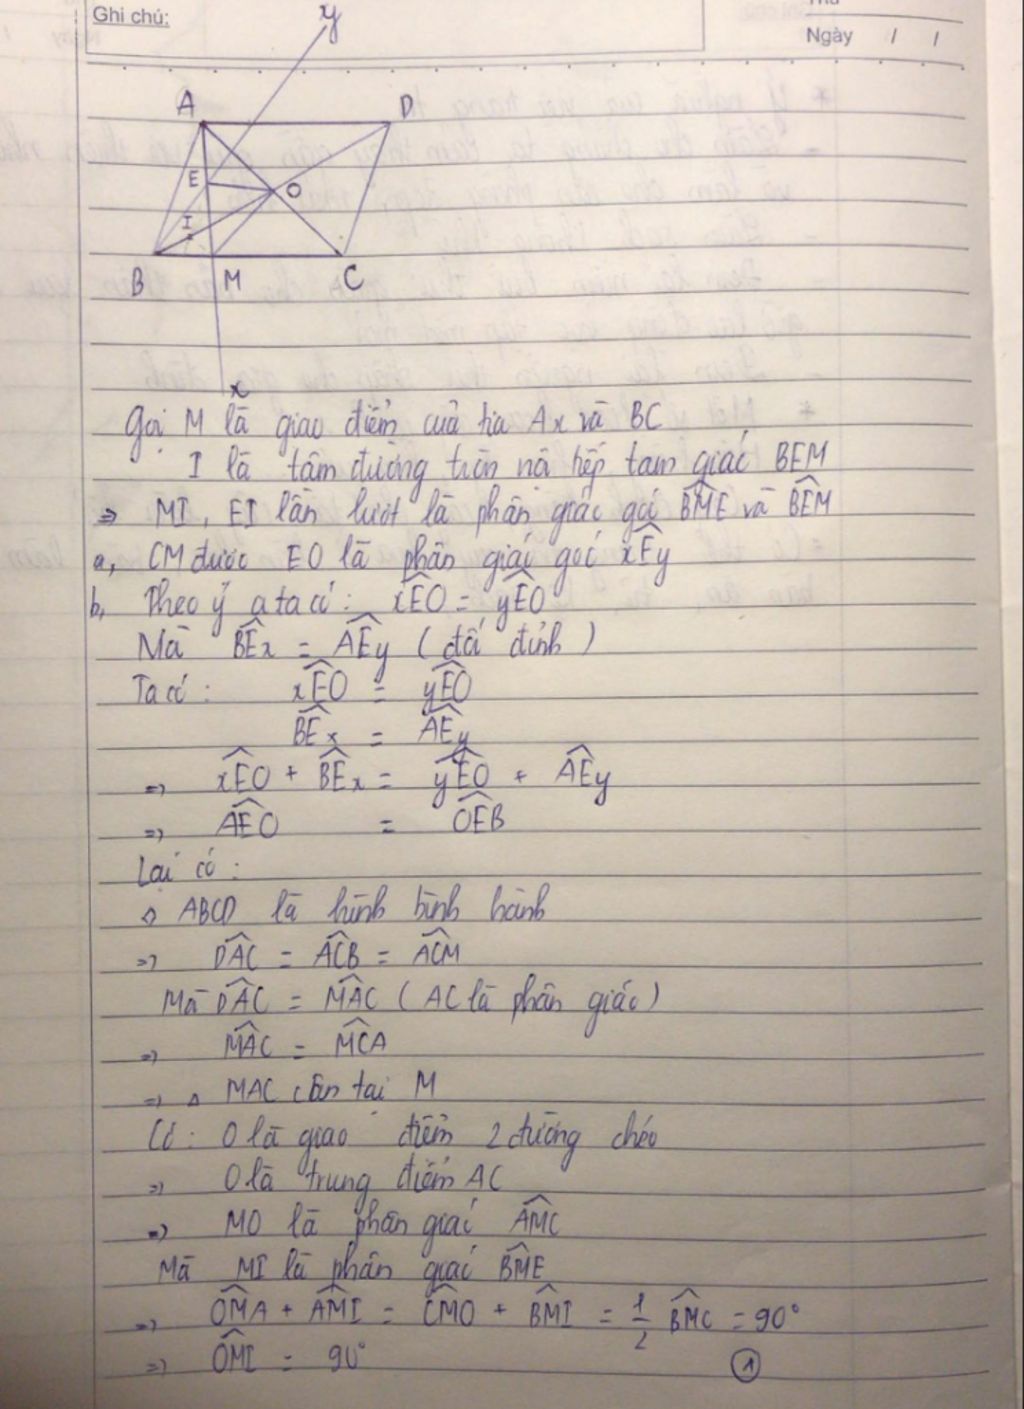 Ghi chú:
Ngày / /
y
A D
E O
I
B M C
x
Gọi M là giao điểm của tia Ax và BC
I là tâm đường tròn nội tiếp tam giác BEM
=> MI, EI lần lượt là phân giác góc \widehat{BME} và \widehat{BEM}
a, CM được EO là phân giác góc \widehat{xEy}
b, Theo ý a ta có: \widehat{xEO} = \widehat{yEO}
Mà \widehat{BEx} = \widehat{AEy} (đối đỉnh)
Ta có: \widehat{xEO} = \widehat{yEO}
\widehat{BEx} = \widehat{AEy}
=> \widehat{xEO} + \widehat{BEx} = \widehat{yEO} + \widehat{AEy}
=> \widehat{AEO} = \widehat{OEB}
Lại có:
◊ ABCD là hình bình hành
=> \widehat{DAC} = \widehat{ACB} = \widehat{ACM}
Mà \widehat{DAC} = \widehat{MAC} (AC là phân giác)
=> \widehat{MAC} = \widehat{MCA}
=> △ MAC cân tại M
Có: O là giao điểm 2 đường chéo
=> O là trung điểm AC
=> MO là phân giác \widehat{AMC}
Mà MI là phân giác \widehat{BME}
=> \widehat{OMA} + \widehat{AMI} = \widehat{CMO} + \widehat{BMI} = 1/2 \widehat{BMC} = 90°
=> \widehat{OMI} = 90° ①